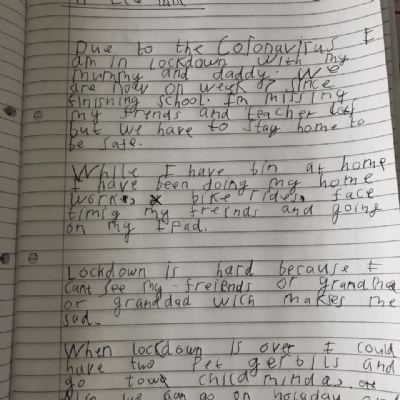 Due to the Colonavirus I
am in lockdown with my
mummy and daddy. We
are now on week 8 since
finishing school. I'm missing
my friends and teacher
but we have to stay home to
be safe.
While I have bin at home
I have been doing my home
works, bike rides, face
timig my freinds and going
on my I pad.
Lockdown is hard because I
cant see my freiends or
or granddad wich makses me
sad.
When lockdown is over I could
have two Pet gerbils and
go child mindas,
we can go on holaday and